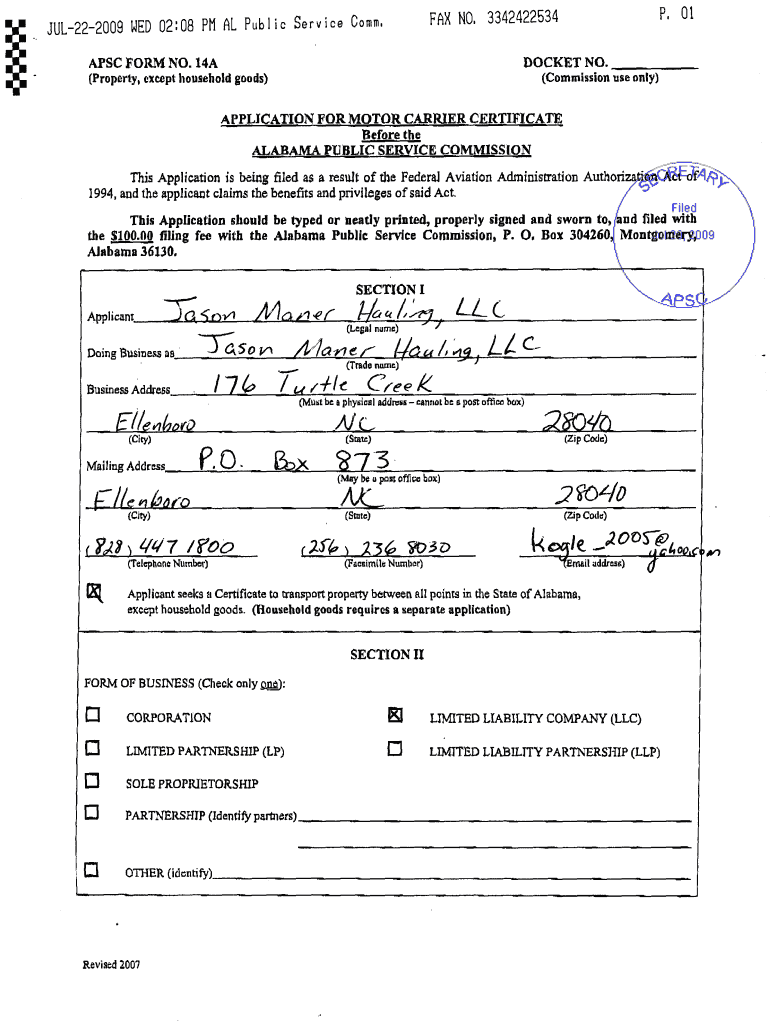 JUL-22-2009 WED 02:08 PM AL Public Service Comm. FAX NO. 3342422534 P. 01
APSC FORM NO. 14A DOCKET NO.
(Property, except household goods) (Commission use only)
APPLICATION FOR MOTOR CARRIER CERTIFICATE
Before the
ALABAMA PUBLIC SERVICE COMMISSION
This Application is being filed as a result of the Federal Aviation Administration Authorization Act of
1994, and the applicant claims the benefits and privileges of said Act.
SECRETARY
Filed
2009
APSC
This Application should be typed or neatly printed, properly signed and sworn to, and filed with
the $100.00 filing fee with the Alabama Public Service Commission, P. O. Box 304260, Montgomery,
Alabama 36130.
SECTION I
Applicant Jason Maner Hauling, LLC
(Legal name)
Doing Business as Jason Maner Hauling, LLC
(Trade name)
Business Address 176 Turtle Creek
(Must be a physical address – cannot be a post office box)
Ellenboro NC 28040
(City) (State) (Zip Code)
Mailing Address P.O. Box 873
(May be a post office box)
Ellenboro NC 28040
(City) (State) (Zip Code)
(828) 447 1800 (256) 236 8030 Kogle_2005@yahoo.com
(Telephone Number) (Facsimile Number) (Email address)
Applicant seeks a Certificate to transport property between all points in the State of Alabama,
except household goods. (Household goods requires a separate application)
SECTION II
FORM OF BUSINESS (Check only one):
CORPORATION LIMITED LIABILITY COMPANY (LLC)
LIMITED PARTNERSHIP (LP) LIMITED LIABILITY PARTNERSHIP (LLP)
SOLE PROPRIETORSHIP
PARTNERSHIP (Identify partners)
OTHER (identify)
Revised 2007